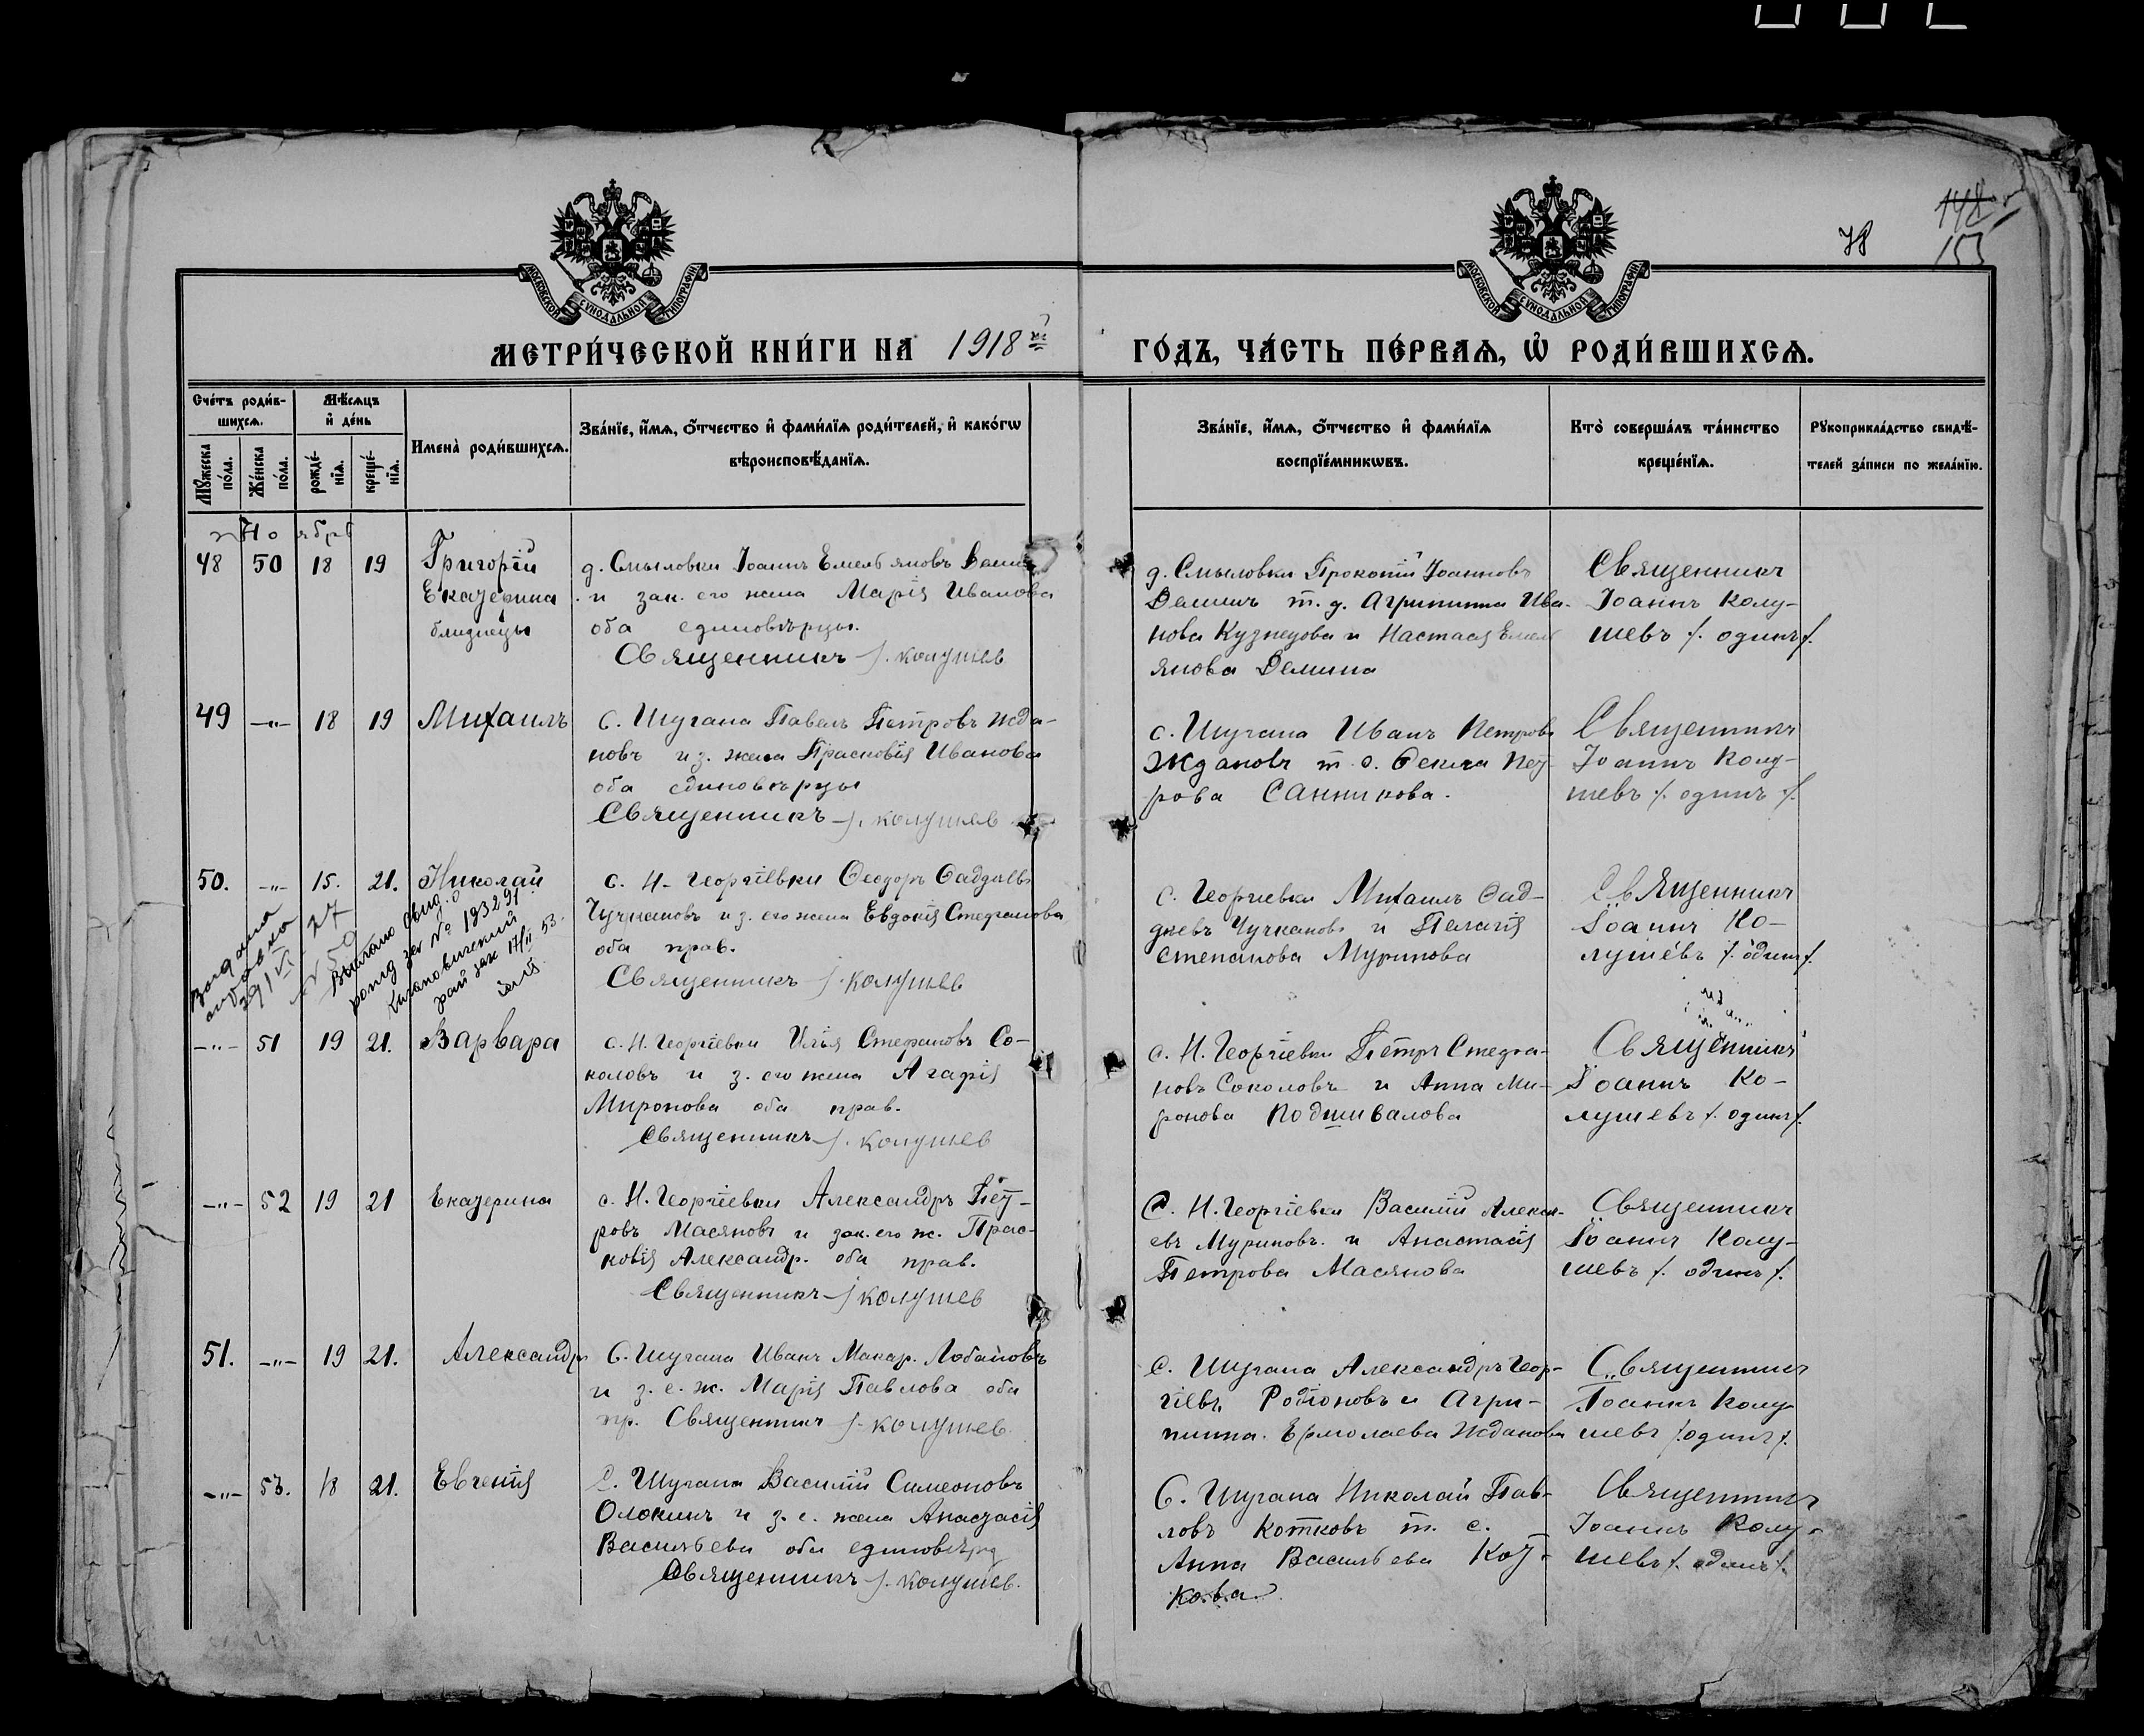 78
148
153
МОСКОВСКОЙ СУНОДАЛЬНОЙ ТИПОГРАФІИ
МОСКОВСКОЙ СУНОДАЛЬНОЙ ТИПОГРАФІИ
МЕТРИ́ЧЕСКОЙ КНИ́ГИ НА 1918 й
ГО́ДЪ, ЧА́СТЬ ПЕ́РВАѦ, Ѡ҆ РОДИ́ВШИХСѦ.
Сче́тъ роди́в-
шихсѧ.
Мѣ́сѧцъ
и҆ де́нь
Мꙋ́жеска
по́ла.
Же́нска
по́ла.
рожде́-
нїѧ.
креще́-
нїѧ.
Имена̀ роди́вшихсѧ.
Зва́нїе, и҆́мѧ, ѻ҆́тчество и҆ фами́лїѧ роди́телей, и҆ како́гѡ
вѣроисповѣ́данїѧ.
Зва́нїе, и҆́мѧ, ѻ҆́тчество и҆ фами́лїѧ
воспрїе́мникѡвъ.
Кто̀ соверша́лъ та́инство
креще́нїѧ.
Рꙋкоприкла́дство свидѣ́-
телей за́писи по жела́нїю.
Ноябрь
48 50 18 19
Григорій
Екатерина
близнецы
д. Смысловки Іоаннъ Емельяновъ Деминъ
и зак. его жена Марія Иванова
оба единовѣрцы.
Священникъ І. Колушев
д. Смысловки Прокопій Іоанновъ
Деминъ т. д. Агрипина Ива-
нова Кузнецова и Настасія Емель
янова Демина
Священникъ
Іоаннъ Колу-
шевъ /. одинъ /.
49 -"- 18 19 Михаилъ
с. Шугана Павелъ Петровъ Жда-
новъ и з. жена Прасковія Иванова
оба единовѣрцы
Священникъ І. Колушев
с. Шугана Иванъ Петровъ
Ждановъ т. с. Фекла Пет-
рова Санникова.
Священникъ
Іоаннъ Колу-
шевъ /. одинъ /.
50. -"- 15. 21. Николай
с. Н- Георгіевки Ѳеодоръ Фаддѣевъ
Чучкановъ и з. его жена Евдокія Стефанова
оба прав.
Священникъ І. Колушев
с. Георгиевки Михаилъ Фад-
деевъ Чучкановъ и Пелагія
Степанова Муринова
Священникъ
Іоаннъ Ко-
лушевъ /. одинъ /.
Выдана
29/VI - 27
№ 50
Выдано свид. о
рожд. за № 193291
17/II 53.
-"- 51 19 21. Варвара
с. Н. Георгіевки Илья Стефановъ Со-
коловъ и з. его жена Агафія
Миронова оба прав.
Священникъ І. Колушев
с. Н. Георгіевки Петръ Стефа-
новъ Соколовъ и Анна Ми-
ронова Подшивалова
Священникъ
Іоаннъ Ко-
лушевъ /. одинъ /.
-"- 52 19 21 Екатерина
с. Н. Георгіевки Александръ Пет-
ровъ Масяновъ и зак. его ж. Прас-
ковія Александр. оба прав.
Священникъ І Колушев
С. Н. Георгіевки Василій Алексе-
евъ Муриновъ. и Анастасія
Петрова Масянова
Священникъ
Іоаннъ Колу-
шевъ /. одинъ /.
51. -"- 19 21. Александръ
С. Шугана Иванъ Макар. Лобановъ
и з. е. ж. Марія Павлова оба
пр. Священникъ І. Колушев.
С. Шугана Александръ Геор-
гіевъ Родіоновъ и Агри-
пина. Ермолаева Жданова
Священникъ
Іоаннъ Колу-
шевъ /. одинъ /.
-"- 53. 18 21. Евгенія
С. Шугана Василій Симеоновъ
Олокинъ и з. е. жена Анастасія
Васильева оба единовѣрц
Священникъ І. Колушев.
С. Шугана Николай Пав-
ловъ Котковъ т. с.
Анна Васильева Кот-
кова
Священникъ
Іоаннъ Колу-
шевъ /. одинъ /.